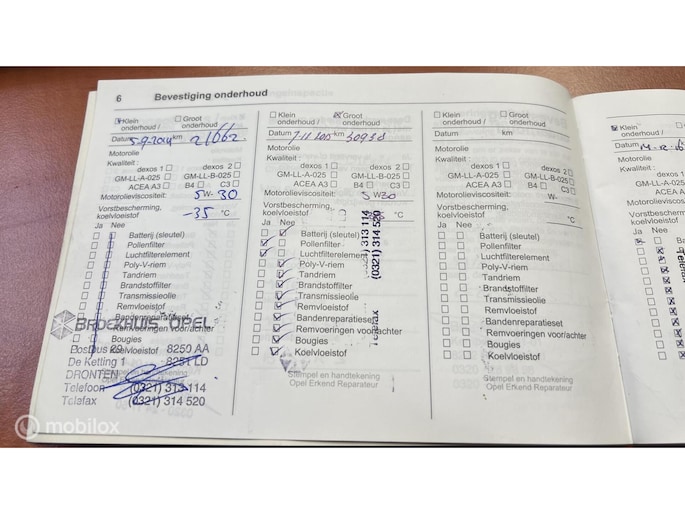 6 Bevestiging onderhoud
Klein onderhoud / Groot onderhoud
Datum 5-9-2014 km 21662
Motorolie
Kwaliteit :
dexos 1 dexos 2
GM-LL-A-025 GM-LL-B-025
ACEA A3 B4 C3
Motorolieviscositeit: 5 W- 30
Vorstbescherming, koelvloeistof -35 °C
Ja Nee
Batterij (sleutel)
Pollenfilter
Luchtfilterelement
Poly-V-riem
Tandriem
Brandstoffilter
Transmissieolie
Remvloeistof
Bandenreparatieset
Remvoeringen voor/achter
Bougies
Koelvloeistof
BROEKHUIS OPEL
Postbus 8250 AA
De Ketting 1 8251 LD
DRONTEN
Telefoon (0321) 313 114
Telefax (0321) 314 520
Klein onderhoud / Groot onderhoud
Datum km 30938
Motorolie
Kwaliteit :
dexos 1 dexos 2
GM-LL-A-025 GM-LL-B-025
ACEA A3 B4 C3
Motorolieviscositeit: 5 W30
Vorstbescherming, koelvloeistof °C
Ja Nee
Batterij (sleutel)
Pollenfilter
Luchtfilterelement
Poly-V-riem
Tandriem
Brandstoffilter
Transmissieolie
Remvloeistof
Bandenreparatieset
Remvoeringen voor/achter
Bougies
Koelvloeistof
(0321) 313 114
(0321) 314 520
Telefax
Stempel en handtekening
Opel Erkend Reparateur
Klein onderhoud / Groot onderhoud
Datum km
Motorolie
Kwaliteit :
dexos 1 dexos 2
GM-LL-A-025 GM-LL-B-025
ACEA A3 B4 C3
Motorolieviscositeit: W-
Vorstbescherming, koelvloeistof °C
Ja Nee
Batterij (sleutel)
Pollenfilter
Luchtfilterelement
Poly-V-riem
Tandriem
Brandstoffilter
Transmissieolie
Remvloeistof
Bandenreparatieset
Remvoeringen voor/achter
Bougies
Koelvloeistof
Stempel en handtekening
Opel Erkend Reparateur
Klein onderhoud /
Datum
Motorolie
Kwaliteit :
Motorolieviscos
Vorstbeschermi
koelvloeistof
Ja Nee
mobilox